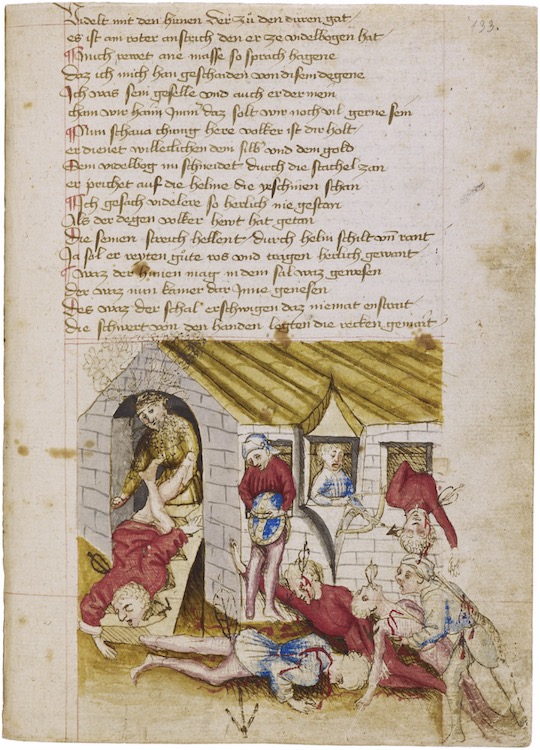 Videlt mit den hinen der zů den duren gat
133.
es ist ain roter anstrich den er ze videlbogen hat
Mich rewet ane masse so sprach hagene
daz ich mich han geschaiden von disem degene
Ich was sein geselle und auch er der mein
cham wir haim daz solt wir noch vil gerne sein
Nun schawa chunig here volker ist dir holt
er dienet willeclichen dem silb' und dem gold
Sein videlbog im schneidet durch die stachel zan
er prichet auf die helme die schinen schan
Ich gesach videlere so herlich nie gestan
Als der degen volker hewt hat getan
Die seinen straich hellent durch helm schilt vn̄ rant
Ja sol er reyten gůte ros und tragen herlich gewant
Waz der hunen mag in dem sal waz gewesen
Der waz nun kainer dar Inne genesen
Des waz der schal erschwigen daz niemat enstrait
die schwert von den handen legten die recken gemait